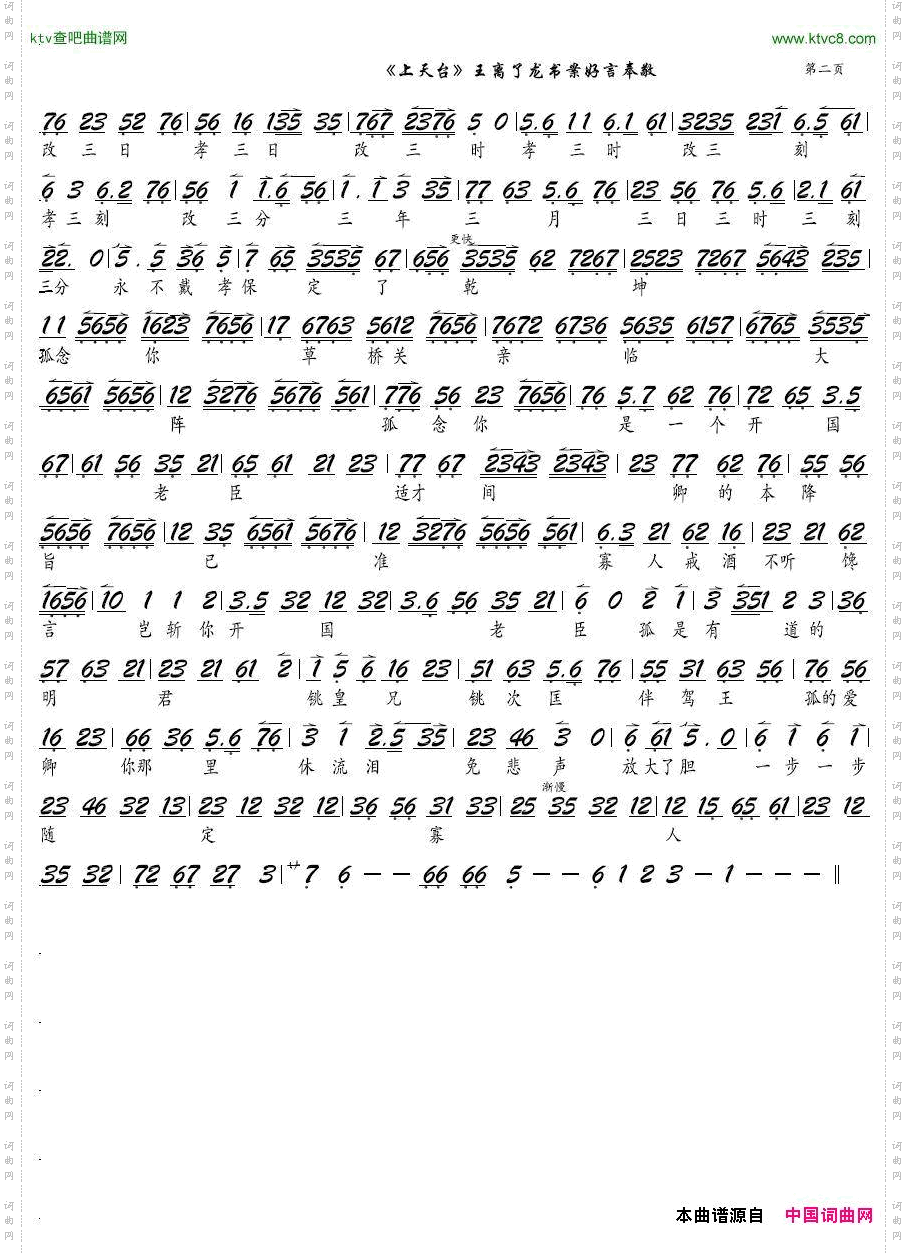 ktv查吧曲谱网 www.ktvc8.com
《上天台》王离了龙书案好言奉敬 第二页
76 23 52 76 | 56 16 135 35 | 767 2376 5 0 | 5.6 11 6.1 61 | 3235 231 6.5 61 |
改 三 日 孝 三 日 改 三 时 孝 三 时 改 三 刻
6 3 6.2 76 | 56 1 1.6 56 | 1. 1 3 35 | 77 63 5.6 76 | 23 56 76 5.6 | 2.1 61
孝 三 刻 改 三 分 三 年 三 月 三 日 三 时 三 刻
更快
22. 0 | 5. 5 36 5 | 7 65 3535 67 | 656 3535 62 7267 | 2523 7267 5643 235 |
三分 永 不 戴 孝 保 定 了 乾 坤
11 5656 1623 7656 | 17 6763 5612 7656 | 7672 6736 5635 6157 | 6765 3535
孤念 你 草 桥 关 亲 临 大
6561 5656 | 12 3276 5676 561 | 776 56 23 7656 | 76 5.7 62 76 | 72 65 3.5
阵 孤 念 你 是 一 个 开 国
67 | 61 56 35 21 | 65 61 21 23 | 77 67 2343 2343 | 23 77 62 76 | 55 56
老 臣 适才 间 卿 的 本 降
5656 7656 | 12 35 6561 5676 | 12 3276 5656 561 | 6.3 21 62 16 | 23 21 62
旨 已 准 寡 人 戒 酒 不听 馋
1656 | 10 1 1 2 | 3.5 32 12 32 | 3.6 56 35 21 | 6 0 2 1 | 3 351 2 3 | 36
言 岂 斩 你 开 国 老 臣 孤 是 有 道 的
57 63 21 | 23 21 61 2 | 1 5 6 16 23 | 51 63 5.6 76 | 55 31 63 56 | 76 56
明 君 铫 皇 兄 铫 次 匡 伴 驾 王 孤的 爱
16 23 | 66 36 5.6 76 | 3 1 2.5 35 | 23 46 3 0 | 6 61 5. 0 | 6 1 6 1 |
卿 你那 里 休 流 泪 免 悲 声 放 大了 胆 一 步 一 步
渐慢
23 46 32 13 | 23 12 32 12 | 36 56 31 33 | 25 35 32 12 | 12 15 65 61 | 23 12
随 定 寡 人
35 32 | 72 67 27 3 | 廾 7 6 — — 66 66 5 — — 6 1 2 3 — 1 — — — ‖
本曲谱源自 中国词曲网